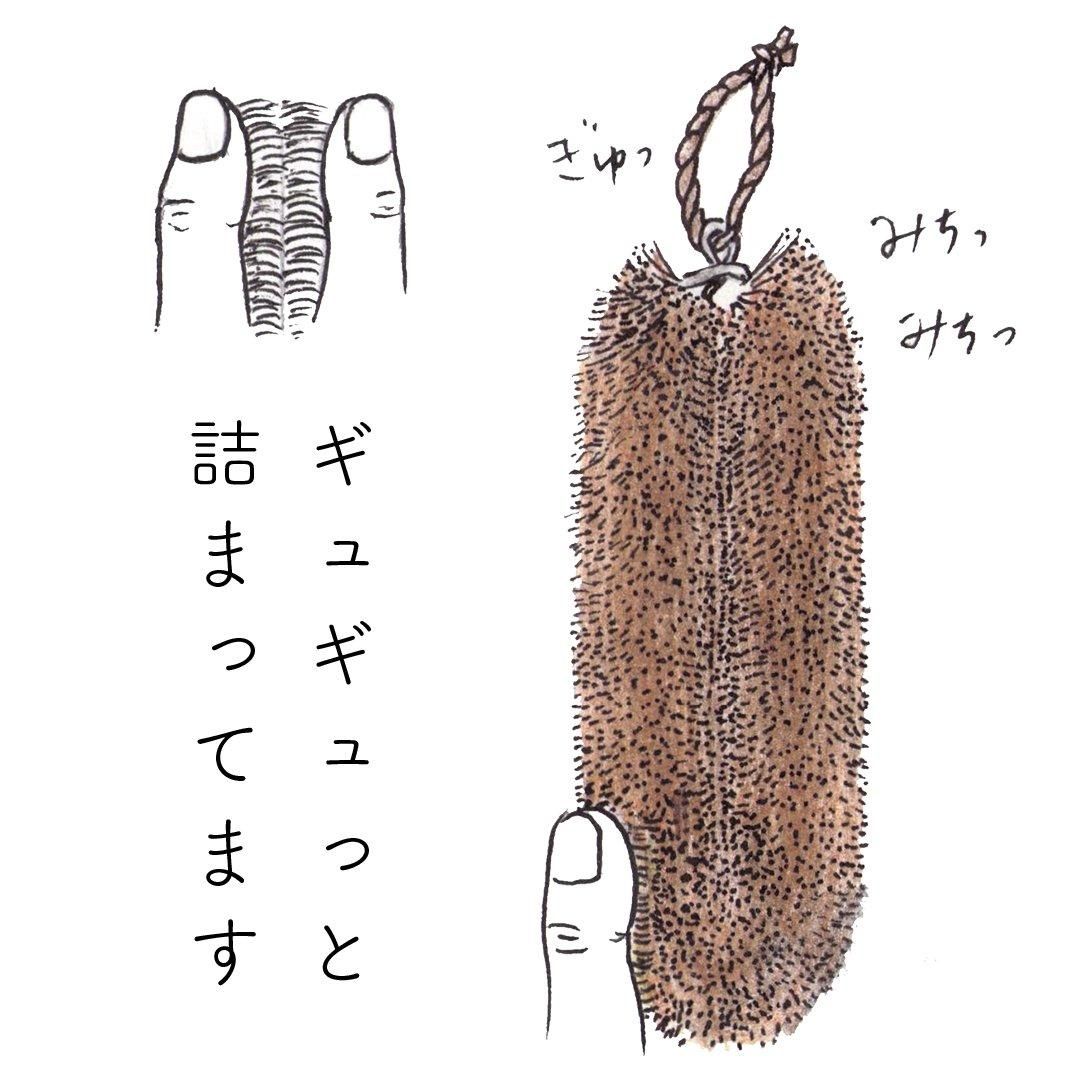 ぎゅっ
みちっ
みちっ
ギュギュっと
詰まってます